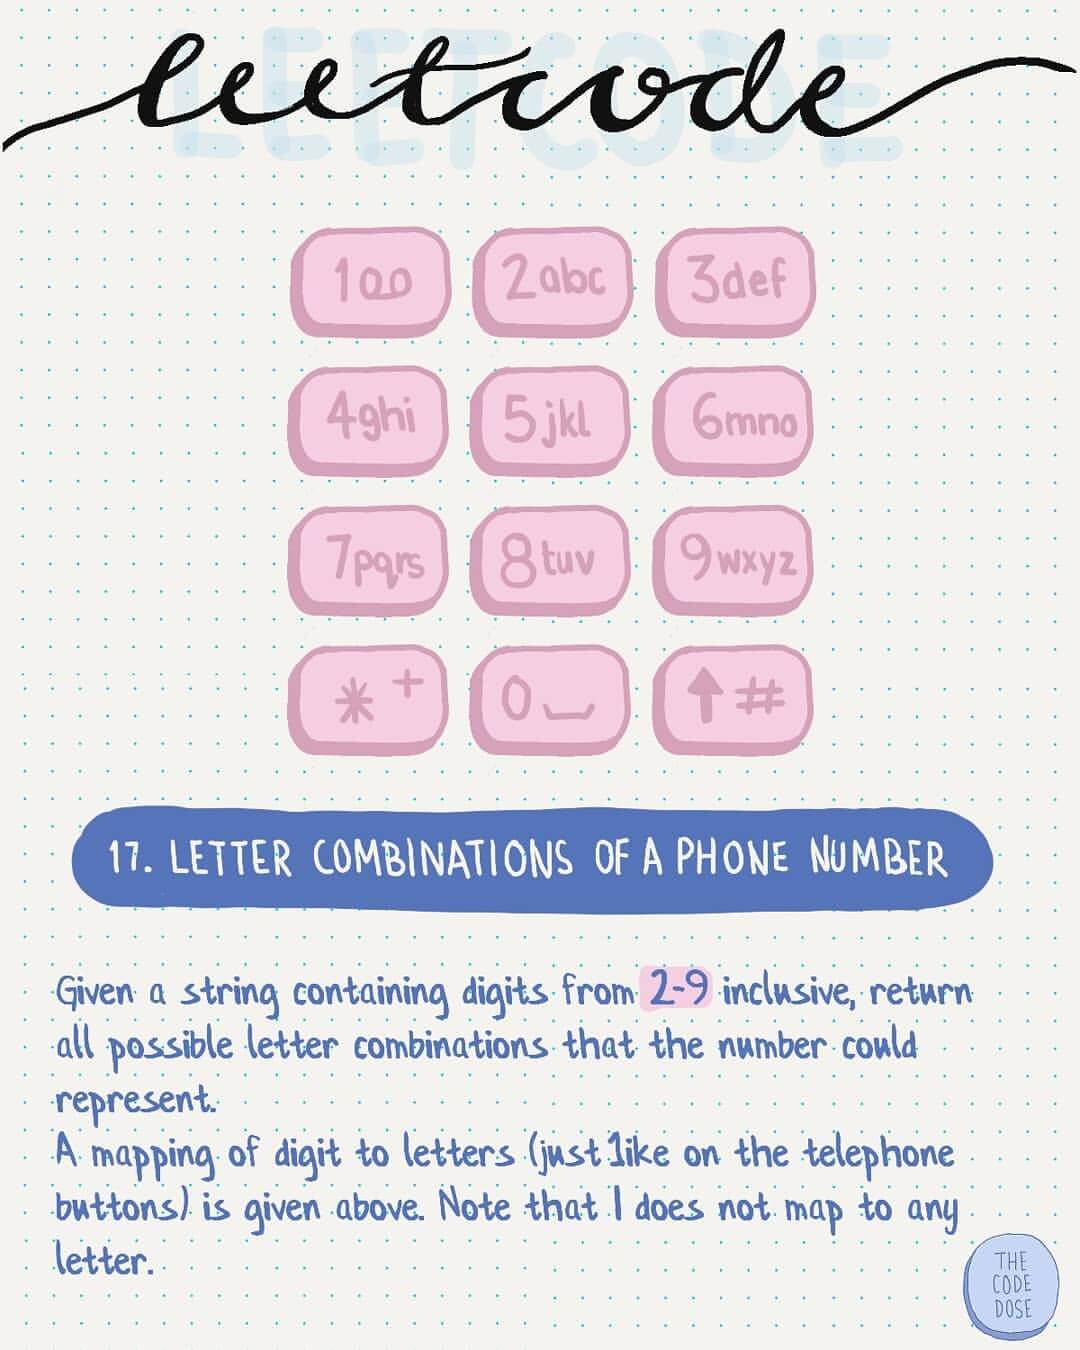 leetcode
LEETCODE
1 2abc 3def
4ghi 5jkl 6mno
7pqrs 8tuv 9wxyz
* + 0 #
17. LETTER COMBINATIONS OF A PHONE NUMBER
Given a string containing digits from 2-9 inclusive, return
all possible letter combinations that the number could
represent.
A mapping of digit to letters (just like on the telephone
buttons) is given above. Note that 1 does not map to any
letter.
THE
CODE
DOSE